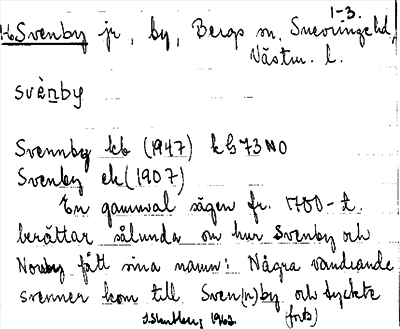 1-3.
Svenby jr, by, Bergs sn, Snevringe hd,
Västm. l.
svè̱nby
Svennby kb (1947) kb 73 NO
Svenby ek (1907)
En gammal sägen fr. 1700-t.
berättar sålunda om hur Svenby och
Norrby fått sina namn: Några vandrande
svenner kom till Sven(n)by och tyckte
1962 forts)